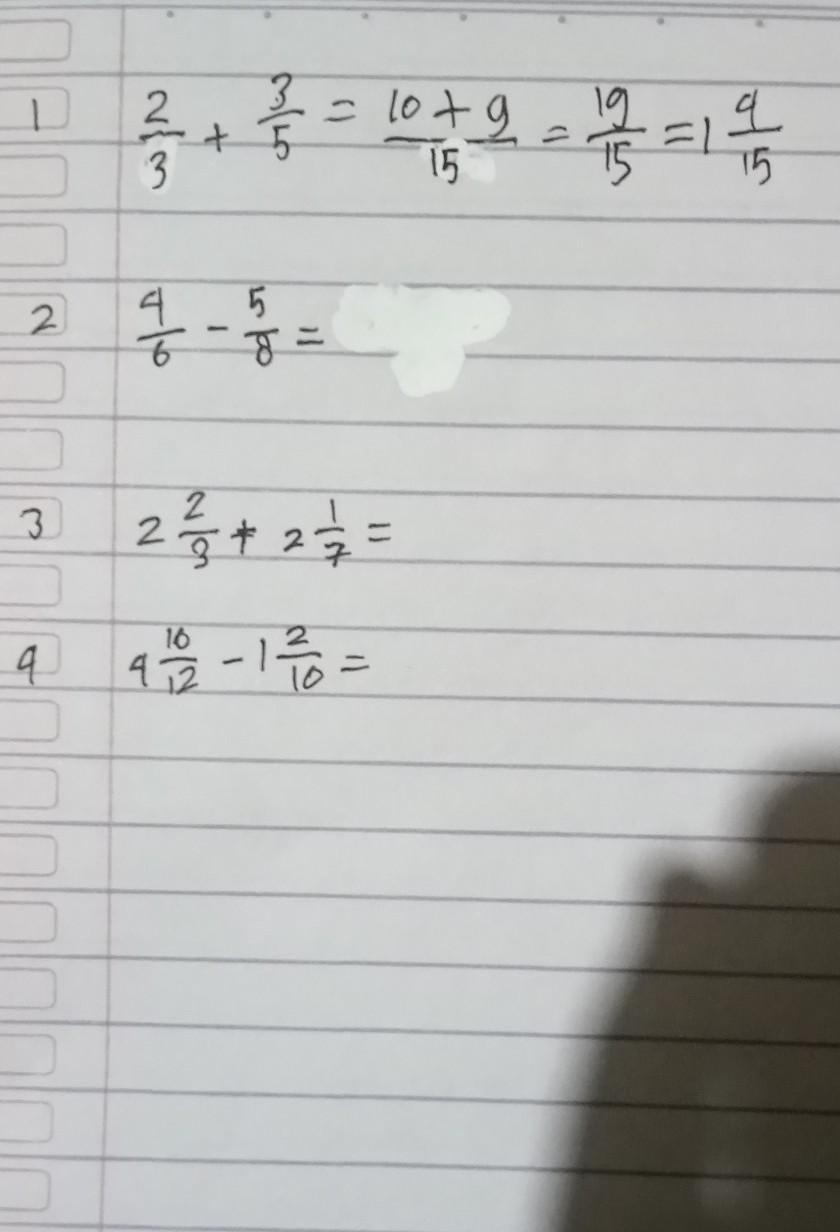 1 2/3 + 3/5 = 10 + 9/15 = 19/15 = 1 4/15
2 4/6 - 5/8 =
3 2 2/3 + 2 1/7 =
4 4 10/12 - 1 2/10 =